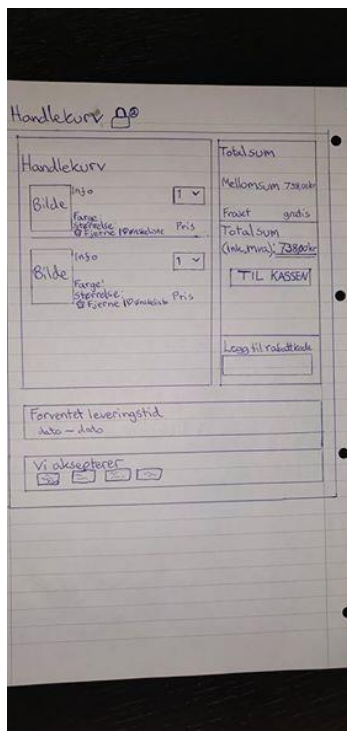 Handlekurv
Handlekurv
Bilde
Info
1
Farge:
Størrelse:
Fjerne | ønskeliste
Pris
Bilde
Info
1
Farge:
Størrelse:
Fjerne | ønskeliste
Pris
Totalsum
Mellomsum 738,00kr
Frakt gratis
Totalsum
(ink.mva): 738,00kr
TIL KASSEN
Legg til rabattkode
Forventet leveringstid
dato - dato
Vi aksepterer